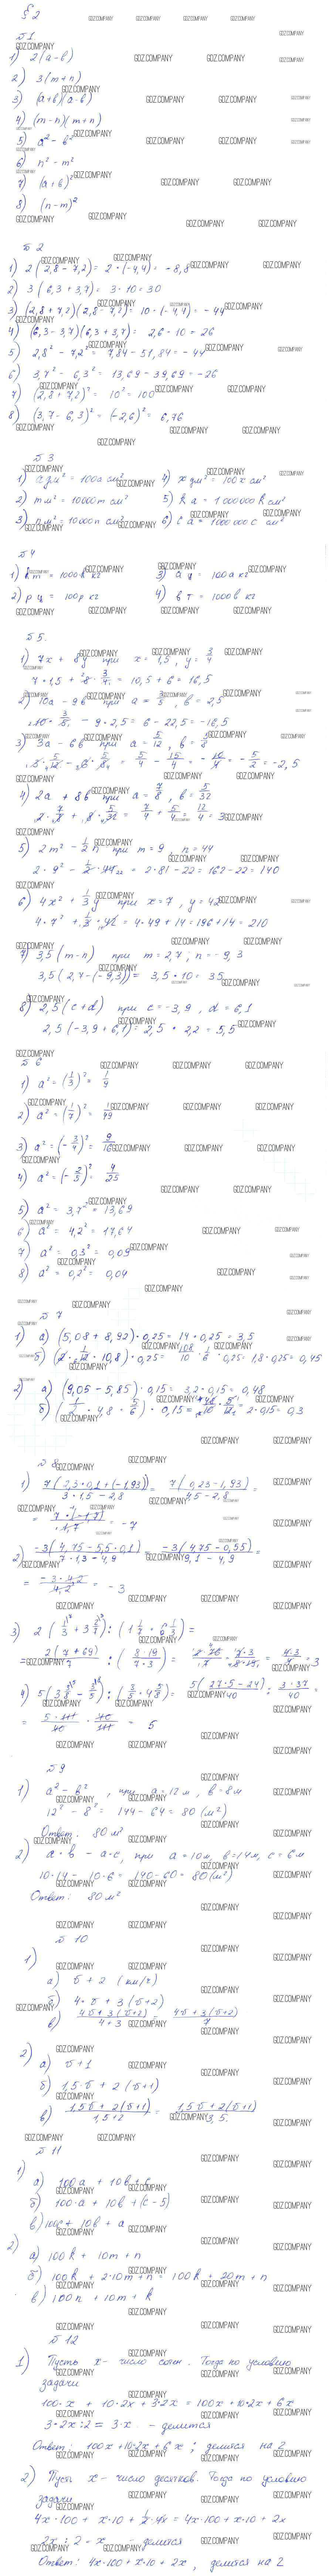 § 2
№ 1
1) 2(a-b)
2) 3(m+n)
3) (a+b)(a-b)
4) (m-n)(m+n)
5) a² - b²
6) n² - m²
7) (a+b)²
8) (n-m)²
№ 2
1) 2(2,8 - 7,2) = 2·(-4,4) = -8,8
2) 3(6,3+3,7) = 3·10 = 30
3) (2,8+7,2)(2,8-7,2) = 10·(-4,4) = -44
4) (6,3-3,7)(6,3+3,7) = 2,6·10 = 26
5) 2,8² - 7,2² = 7,84 - 51,84 = -44
6) 3,7² - 6,3² = 13,69 - 39,69 = -26
7) (2,8+7,2)² = 10² = 100
8) (3,7-6,3)² = (-2,6)² = 6,76
№ 3
1) c дм² = 100a см² 4) x дм² = 100x см²
2) m м² = 10000m см² 5) k a = 1000000k см²
3) n м² = 10000n см² 6) c a = 1000000c см²
№ 4
1) k т = 1000k кг 3) a ц = 100a кг
2) p ц = 100p кг 4) b т = 1000b кг
№ 5.
1) 7x + 8y при x = 1,5, y = 3/4
7·1,5 + 8·3/4 = 10,5 + 6 = 16,5
2) 10a - 9b при a = 3/5, b = 2,5
10·3/5 - 9·2,5 = 6 - 22,5 = -16,5
3) 3a - 6b при a = 5/12, b = 5/8
3·5/12 - 6·5/8 = 5/4 - 15/4 = -10/4 = -5/2 = -2,5
4) 2a + 8b при a = 7/8, b = 5/32
2·7/8 + 8·5/32 = 7/4 + 5/4 = 12/4 = 3
5) 2m² - 1/2 n при m = 9, n = 44
2·9² - 1/2·44 = 2·81 - 22 = 162 - 22 = 140
6) 4x² + 1/3 y при x = 7, y = 42
4·7² + 1/3·42 = 4·49 + 14 = 196 + 14 = 210
7) 3,5(m-n) при m = 2,7, n = -9,3
3,5(2,7-(-9,3)) = 3,5·10 = 35
8) 2,5(c+d) при c = -3,9, d = 6,1
2,5(-3,9+6,1) = 2,5·2,2 = 5,5
№ 6
1) a² = (1/3)² = 1/9
2) a² = (1/7)² = 1/49
3) a² = (-3/4)² = 9/16
4) a² = (-2/5)² = 4/25
5) a² = 3,7² = 13,69
6) a² = 4,2² = 17,64
7) a² = 0,3² = 0,09
8) a² = 0,2² = 0,04
№ 7
1) а) (5,08 + 8,92)·0,25 = 14·0,25 = 3,5
б) (2·1/12·10,8)·0,25 = 108/10·1/6·0,25 = 1,8·0,25 = 0,45
2) а) (9,05 - 5,85)·0,15 = 3,2·0,15 = 0,48
б) (1/2·4,8·5/6)·0,15 = 48/10·5/12 = 2·0,15 = 0,3
№ 8
1) 7(2,3·0,1+(-1,93))/3·1,5-2,8 = 7(0,23-1,93)/4,5-2,8 =
= 7·(-1,7)/1,7 = -7
2) -3(4,75-5,5·0,1)/7·1,3-4,9 = -3(4,75-0,55)/9,1-4,9 =
= -3·4,2/4,2 = -3
3) 2(1/3+3 2/7):(1 1/7·1/3) =
= 2(7+69)/ : (8·19/7·3) = =3
4) 5(3 3/8-3/5):(3/5·4 5/8) = 5(27·5-24)/40 : 3·37/40 =
= 5·111/40·40/111 = 5
№ 9
1) a² - b², при a = 12м, b = 8м
12² - 8² = 144 - 64 = 80 (м²)
Ответ: 80 м²
2) a·b - a·c, при a = 10м, b = 14м, c = 6м
10·14 - 10·6 = 140 - 60 = 80 (м²)
Ответ: 80 м²
№ 10
1)
а) v + 2 (км/ч)
б) 4·v + 3(v+2)
в) 4v+3(v+2)/4+3 = 4v+3(v+2)/7
2)
а) v+1
б) 1,5·v + 2(v+1)
в) 1,5v+2(v+1)/1,5+2 = 1,5v+2(v+1)/3,5.
№ 11
1)
а) 100a + 10b + c
б) 100·a + 10b + (c-5)
в) 100c + 10b + a
2)
а) 100k + 10m + n
б) 100k + 2·10m + n = 100k + 20m + n
в) 100n + 10m + k
№ 12
1) Пусть x - число сотен. Тогда по условию
задачи
100·x + 10·2x + 3·2x = 100x + 10·2x + 6x
3·2x:2 = 3·x - делится
Ответ: 100x + 10·2x + 6x; делится на 2
2) Пусть x - число десятков. Тогда по условию
задачи
4x·100 + x·10 + 1/2·4x = 4x·100 + x·10 + 2x
2x : 2 = x - делится
Ответ: 4x·100 + x·10 + 2x, делится на 2
GDZ.COMPANY